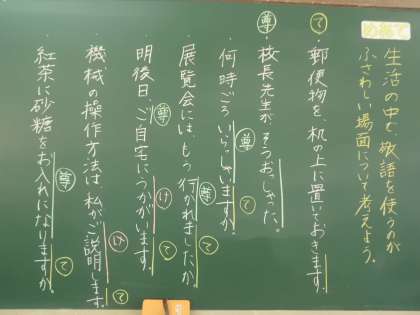 めあて
生活の中で、敬語を使うのが
ふさわしい場面について考えよう。
て
・郵便物を、机の上に置いておきます。
尊
・校長先生がそうおっしゃった。
尊 て
・何時ごろいらっしゃいますか。
尊 て
・展覧会には、もう行かれましたか。
尊 け て
・明後日、ご自宅にうかがいます。
け て
・機械の操作方法は、私がご説明します。
尊 て
・紅茶に砂糖をお入れになりますか。